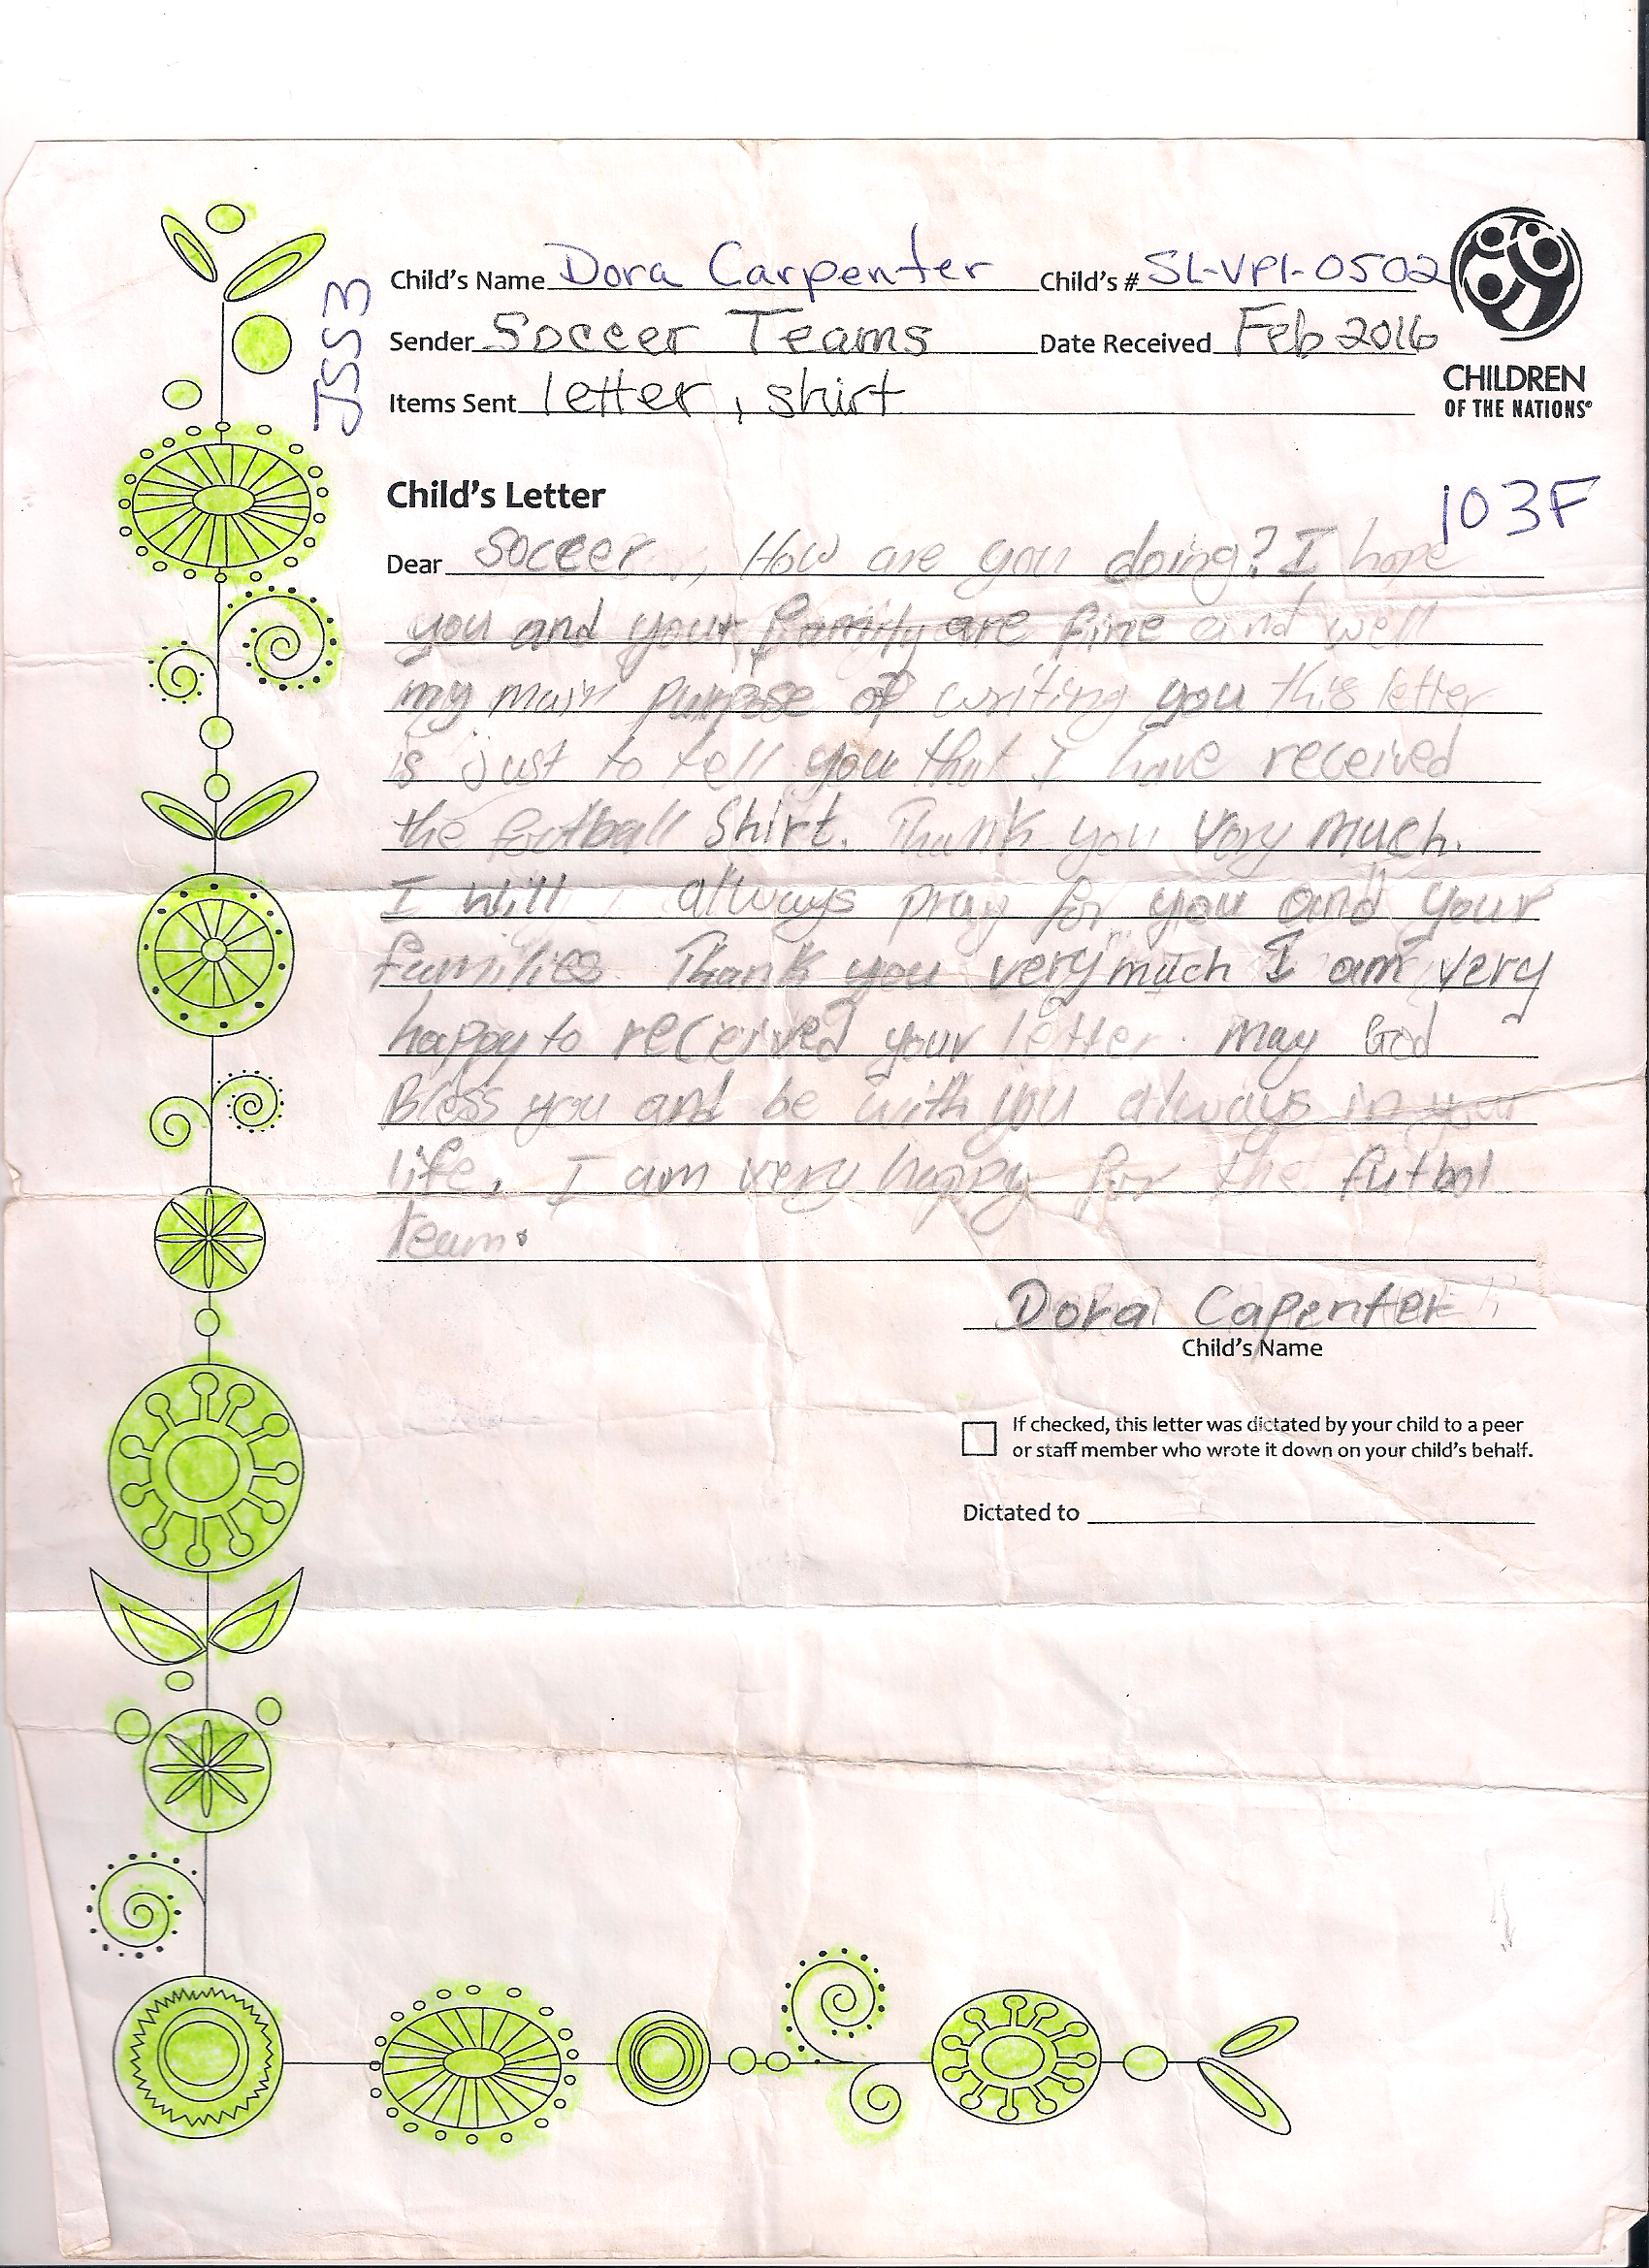 Child's Name Dora Carpenter Child's # SL-VPI-0502
Sender Soccer Teams Date Received Feb 2016
Items Sent letter, shirt
JSS3
CHILDREN
OF THE NATIONS®
103F
Child's Letter
Dear Soccer, How are you doing? I hope
you and your family are fine and well
my main purpose of writing you this letter
is just to tell you that I have received
the football Shirt. Thank you Very much.
I will always pray for you and your
families Thank you very much I am very
happy to received your letter. May God
Bless you and be with you always in your
life. I am very happy for the futbol
team.
Dora Capenter
Child's Name
If checked, this letter was dictated by your child to a peer
or staff member who wrote it down on your child's behalf.
Dictated to